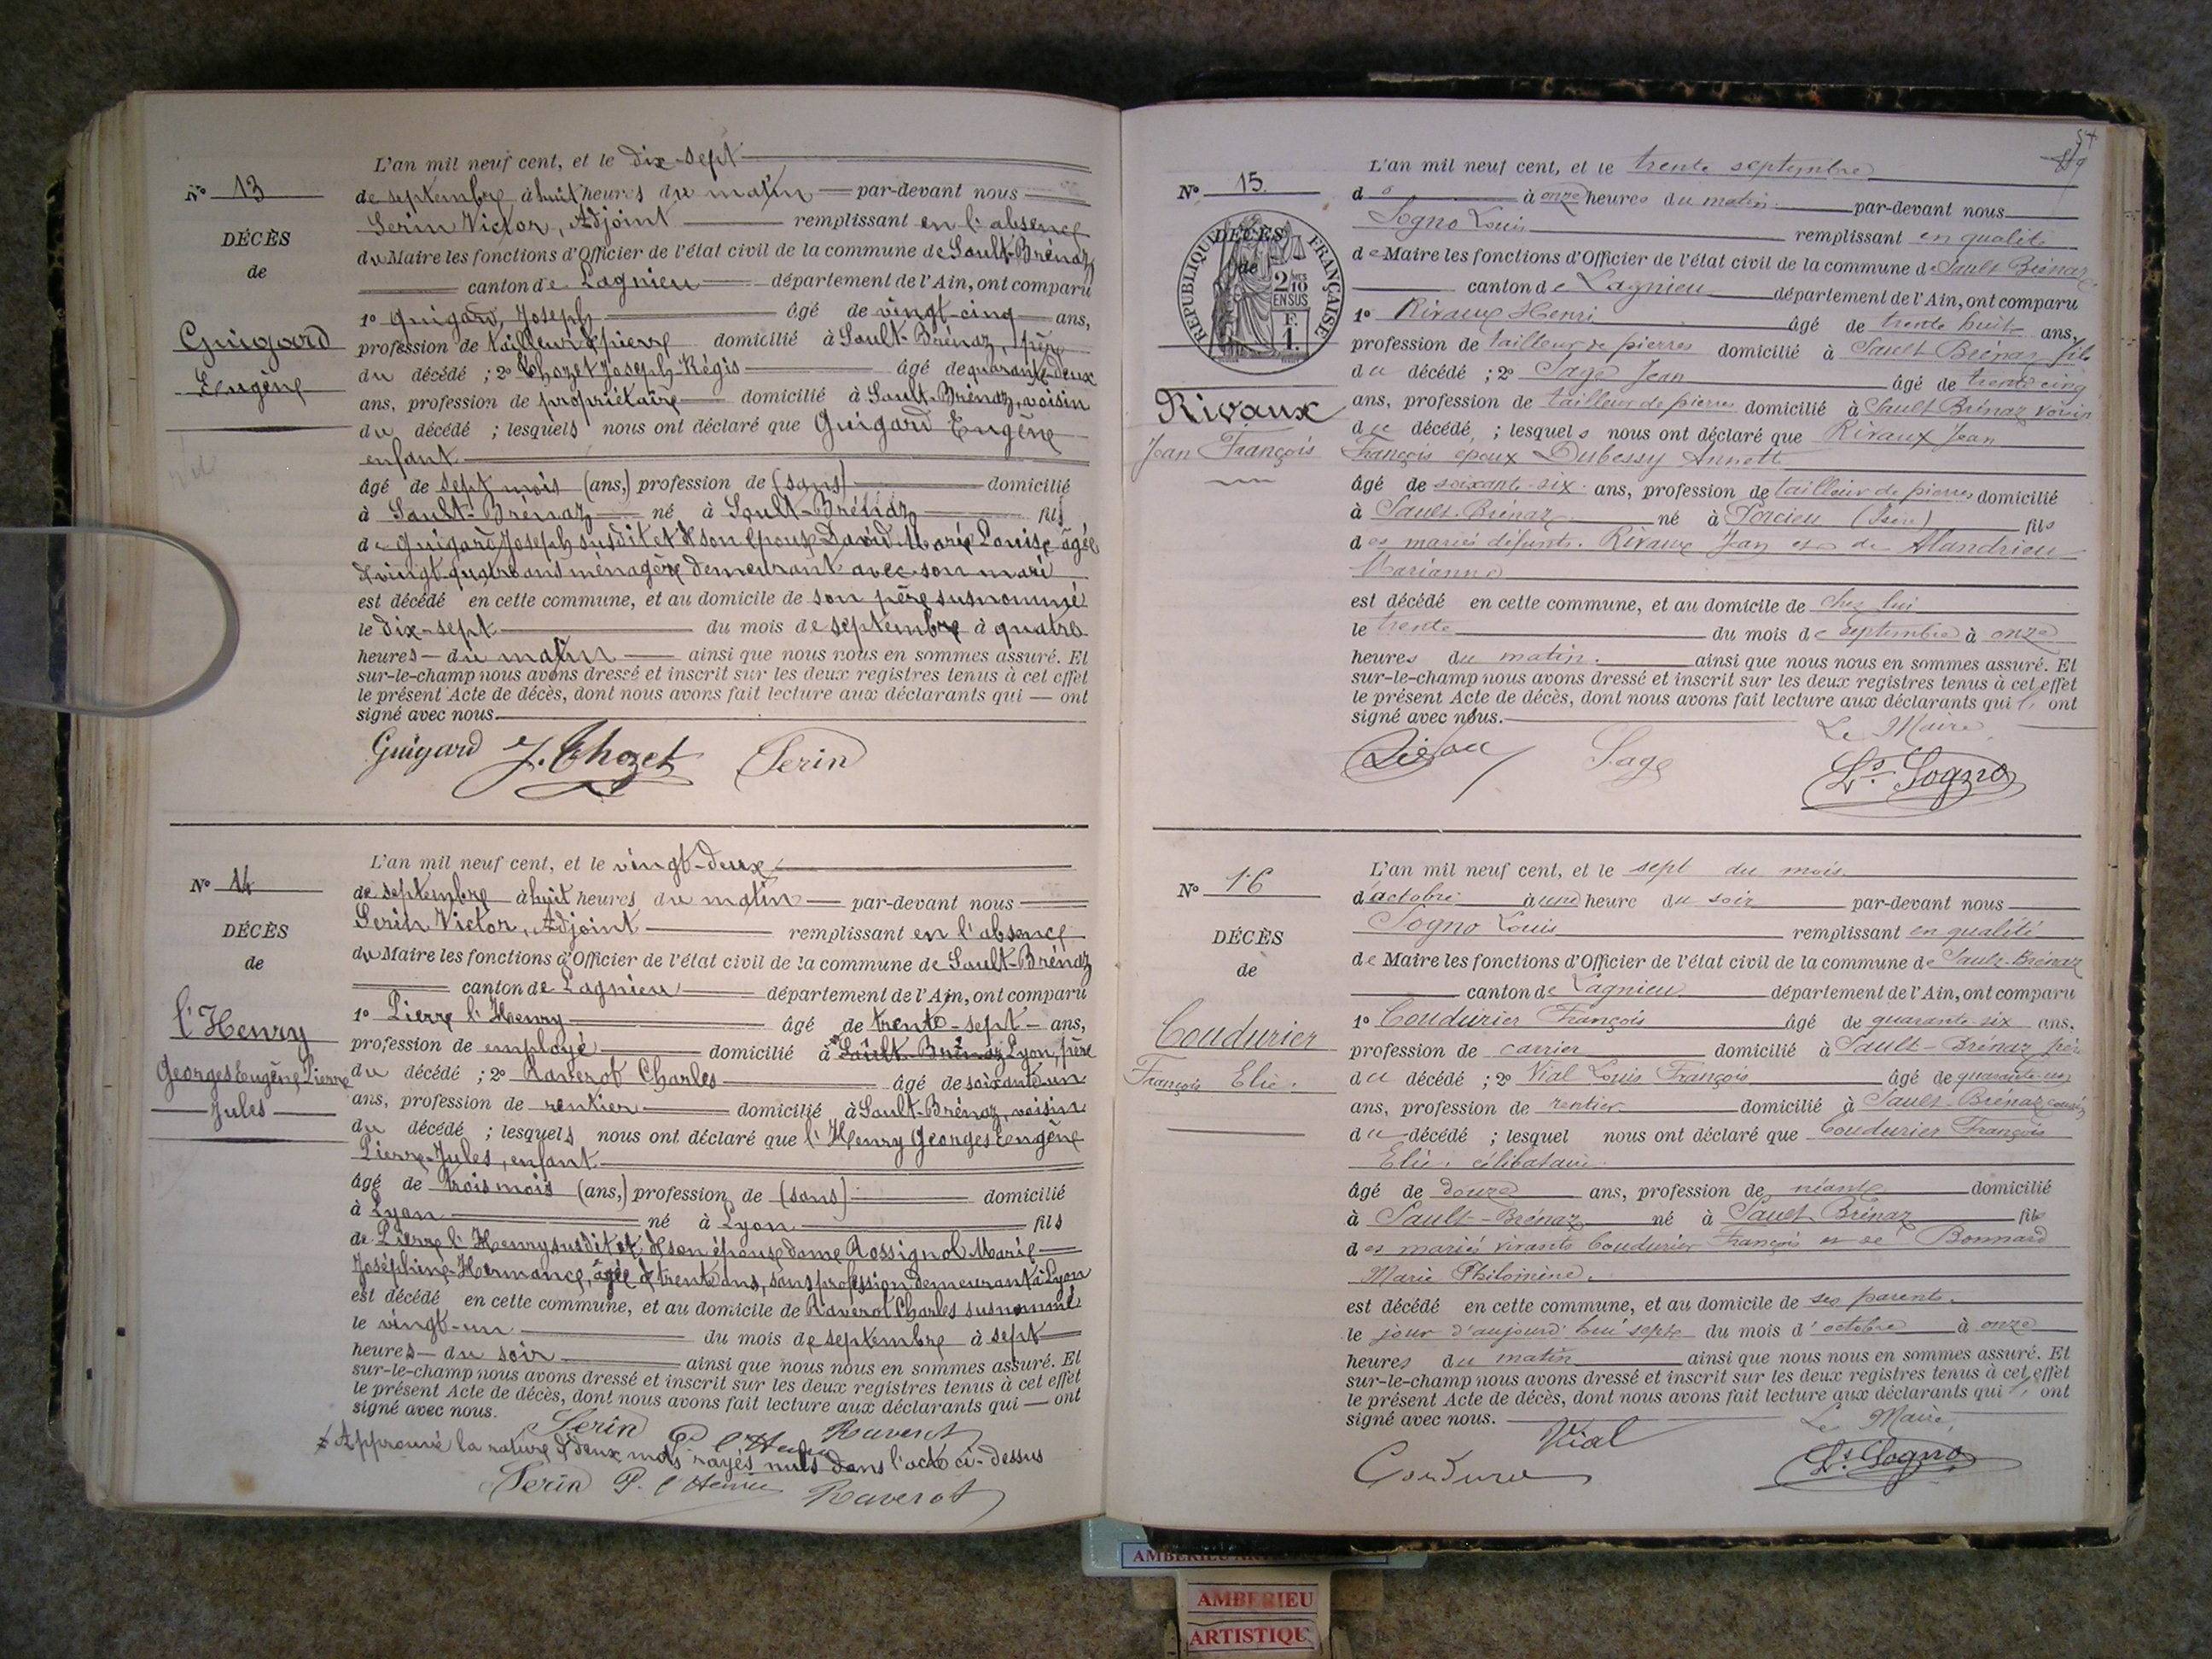 L'an mil neuf cent, et le dix-sept
N° 13
de septembre à huit heures du matin par-devant nous
Serin Victor, Adjoint remplissant en l'absence
DÉCÈS
du Maire les fonctions d'Officier de l'état civil de la commune de Sault-Brénaz
de
canton de Lagnieu département de l'Ain, ont comparu
1° Guigard, Joseph âgé de vingt-cinq ans,
Guigard
profession de tailleur de pierre domicilié à Sault-Brénaz, père
Eugène
du décédé ; 2° Chozet Joseph-Régis âgé de quarante-deux
ans, profession de propriétaire domicilié à Sault-Brénaz, voisin
du décédé ; lesquels nous ont déclaré que Guigard Eugène
enfant
âgé de sept mois (ans,) profession de (sans) domicilié
à Sault-Brénaz né à Sault-Brénaz fils
de Guigard Joseph susdit et de son épouse David Marie Louise âgée
de vingt quatre ans ménagère demeurant avec son mari
est décédé en cette commune, et au domicile de son père susnommé
le dix-sept du mois de septembre à quatre
heures du matin ainsi que nous nous en sommes assuré. Et
sur-le-champ nous avons dressé et inscrit sur les deux registres tenus à cet effet
le présent Acte de décès, dont nous avons fait lecture aux déclarants qui — ont
signé avec nous.
Guigard J. Chozet Serin
L'an mil neuf cent, et le vingt-deux
N° 14
de septembre à huit heures du matin par-devant nous
Serin Victor, Adjoint remplissant en l'absence
DÉCÈS
du Maire les fonctions d'Officier de l'état civil de la commune de Sault-Brénaz
de
canton de Lagnieu département de l'Ain, ont comparu
1° Pierre l'Henry âgé de trente-sept ans,
l'Henry
profession de employé domicilié à Sault-Brénaz Lyon, père
Georges Eugène Pierre
Jules
du décédé ; 2° Raverot Charles âgé de soixante un
ans, profession de rentier domicilié à Sault-Brénaz, voisin
du décédé ; lesquels nous ont déclaré que l'Henry Georges Eugène
Pierre-Jules, enfant
âgé de trois mois (ans,) profession de (sans) domicilié
à Lyon né à Lyon fils
de Pierre l'Henry susdit et de son épouse dame Rossignol Marie
Joséphine-Hermance, âgée de trente ans, sans profession demeurant à Lyon
est décédé en cette commune, et au domicile de Raverot Charles susnommé
le vingt-un du mois de septembre à sept
heures du soir ainsi que nous nous en sommes assuré. Et
sur-le-champ nous avons dressé et inscrit sur les deux registres tenus à cet effet
le présent Acte de décès, dont nous avons fait lecture aux déclarants qui — ont
signé avec nous.
Serin P. l'Henry Raverot
Approuvé la rature de deux mots rayés nuls dans l'acte ci-dessus
Serin P. l'Henry Raverot
54
L'an mil neuf cent, et le trente septembre
N° 15.
d à onze heures du matin par-devant nous
Sogno Louis remplissant en qualité
DÉCÈS
de
RÉPUBLIQUE FRANÇAISE
2/10 EN SUS
F. 1.
de Maire les fonctions d'Officier de l'état civil de la commune de Sault Brénaz
canton de Lagnieu département de l'Ain, ont comparu
1° Rivaux Henri âgé de trente huit ans,
profession de tailleur de pierres domicilié à Sault Brénaz fils
du décédé ; 2° Sage Jean âgé de trente cinq
Rivaux
ans, profession de tailleur de pierres domicilié à Sault Brénaz voisin
du décédé ; lesquels nous ont déclaré que Rivaux Jean
Jean François
François époux Dubessy Annett
âgé de soixante-six ans, profession de tailleur de pierres domicilié
à Sault-Brénaz né à Porcieu (Isère) fils
des mariés défunts Rivaux Jean et de Alandrieu
Marianne
est décédé en cette commune, et au domicile de chez lui
le trente du mois de septembre à onze
heures du matin. ainsi que nous nous en sommes assuré. Et
sur-le-champ nous avons dressé et inscrit sur les deux registres tenus à cet effet
le présent Acte de décès, dont nous avons fait lecture aux déclarants qui ont
signé avec nous. Le Maire
Sage Ls. Sogno
L'an mil neuf cent, et le sept du mois
N° 16
d'octobre à une heure du soir par-devant nous
Sogno Louis remplissant en qualité
DÉCÈS
de Maire les fonctions d'Officier de l'état civil de la commune de Sault-Brénaz
de
canton de Lagnieu département de l'Ain, ont comparu
1° Coudurier François âgé de quarante-six ans,
Coudurier
profession de carrier domicilié à Sault-Brénaz père
François Elie.
du décédé ; 2° Vial Louis François âgé de quarante-un
ans, profession de rentier domicilié à Sault-Brénaz cousin
du décédé ; lesquel nous ont déclaré que Coudurier François
Elie. célibataire
âgé de douze ans, profession de néante domicilié
à Sault-Brénaz né à Sault Brénaz fils
des mariés vivants Coudurier François et de Bonnard
Marie Philomène.
est décédé en cette commune, et au domicile de ses parents.
le jour d'aujourd'hui sept du mois d'octobre à onze
heures du matin ainsi que nous nous en sommes assuré. Et
sur-le-champ nous avons dressé et inscrit sur les deux registres tenus à cet effet
le présent Acte de décès, dont nous avons fait lecture aux déclarants qui ont
signé avec nous. Le Maire
Vial
Ls. Sogno
AMBERIEU
AMBERIEU
ARTISTIQU